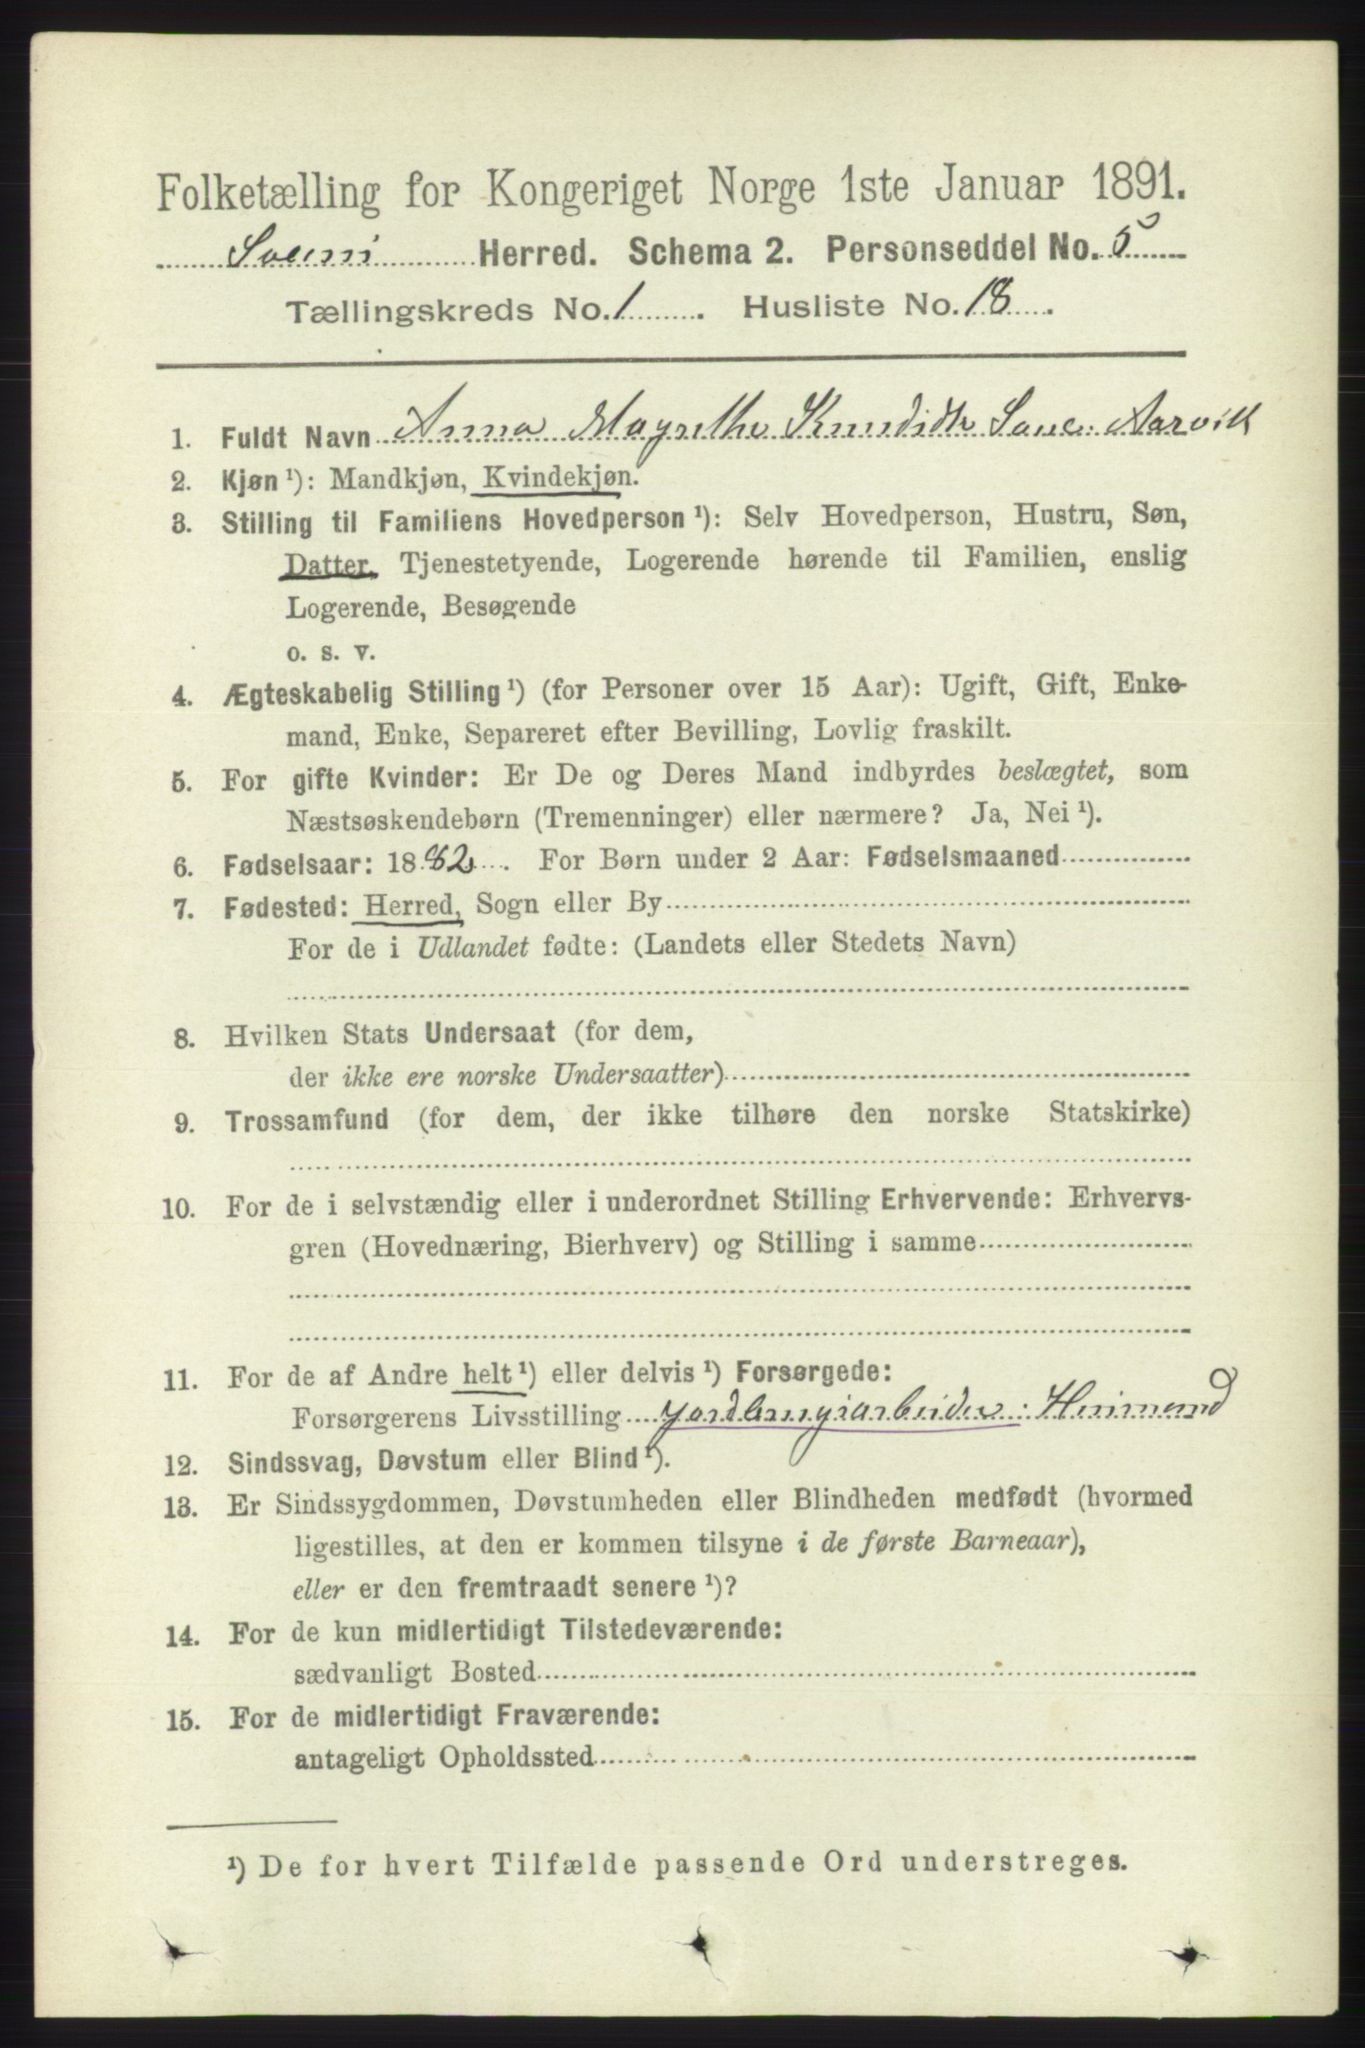 Folketælling for Kongeriget Norge 1ste Januar 1891.
Herred. Schema 2. Personseddel No. 5
Tællingskreds No. 1. Husliste No. 18.
1. Fuldt Navn Anna Magrethe Knudsdtr Aarvik
2. Kjøn ¹): Mandkjøn, Kvindekjøn.
3. Stilling til Familiens Hovedperson ¹): Selv Hovedperson, Hustru, Søn,
Datter, Tjenestetyende, Logerende hørende til Familien, enslig
Logerende, Besøgende
o. s. v.
4. Ægteskabelig Stilling ¹) (for Personer over 15 Aar): Ugift, Gift, Enke-
mand, Enke, Separeret efter Bevilling, Lovlig fraskilt.
5. For gifte Kvinder: Er De og Deres Mand indbyrdes beslægtet, som
Næstsøskendebørn (Tremenninger) eller nærmere? Ja, Nei ¹).
6. Fødselsaar: 1882. For Børn under 2 Aar: Fødselsmaaned
7. Fødested: Herred, Sogn eller By
For de i Udlandet fødte: (Landets eller Stedets Navn)
8. Hvilken Stats Undersaat (for dem,
der ikke ere norske Undersaatter)
9. Trossamfund (for dem, der ikke tilhøre den norske Statskirke)
10. For de i selvstændig eller i underordnet Stilling Erhvervende: Erhvervs-
gren (Hovednæring, Bierhverv) og Stilling i samme
11. For de af Andre helt ¹) eller delvis ¹) Forsørgede:
Forsørgerens Livsstilling
12. Sindssvag, Døvstum eller Blind ¹).
13. Er Sindssygdommen, Døvstumheden eller Blindheden medfødt (hvormed
ligestilles, at den er kommen tilsyne i de første Barneaar),
eller er den fremtraadt senere ¹)?
14. For de kun midlertidigt Tilstedeværende:
sædvanligt Bosted
15. For de midlertidigt Fraværende:
antageligt Opholdssted
¹) De for hvert Tilfælde passende Ord understreges.